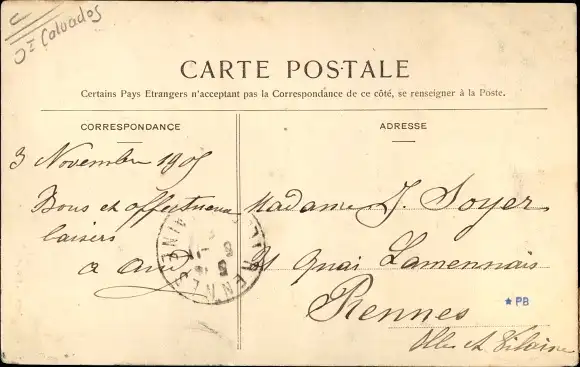 Calvados
CARTE POSTALE
Certains Pays Etrangers n'acceptant pas la Correspondance de ce côté, se renseigner à la Poste.
CORRESPONDANCE
3 Novembre 1905
Bons et affectueux
baisers
ADRESSE
Madame J. Soyer
Quai Lamennais
Rennes
Ille et Vilaine
PB